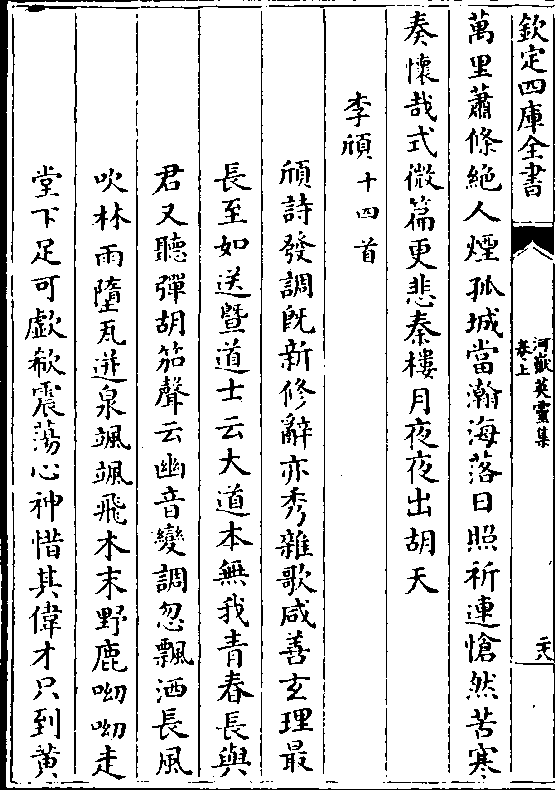 欽定四庫全書
河嶽英靈集
卷上
二六
萬里蕭條絕人煙孤城當瀚海落日照祈連愴然苦寒
奏懷哉式微篇更悲秦樓月夜夜出胡天
李頎十四首
頎詩發調旣新修辭亦秀雜歌咸善玄理最
長至如送暨道士云大道本無我青春長與
君又聽彈胡笳聲云幽音變調忽飄洒長風
吹林雨墮瓦迸泉颯颯飛木末野鹿呦呦走
堂下足可歔欷震蕩心神惜其偉才只到黃